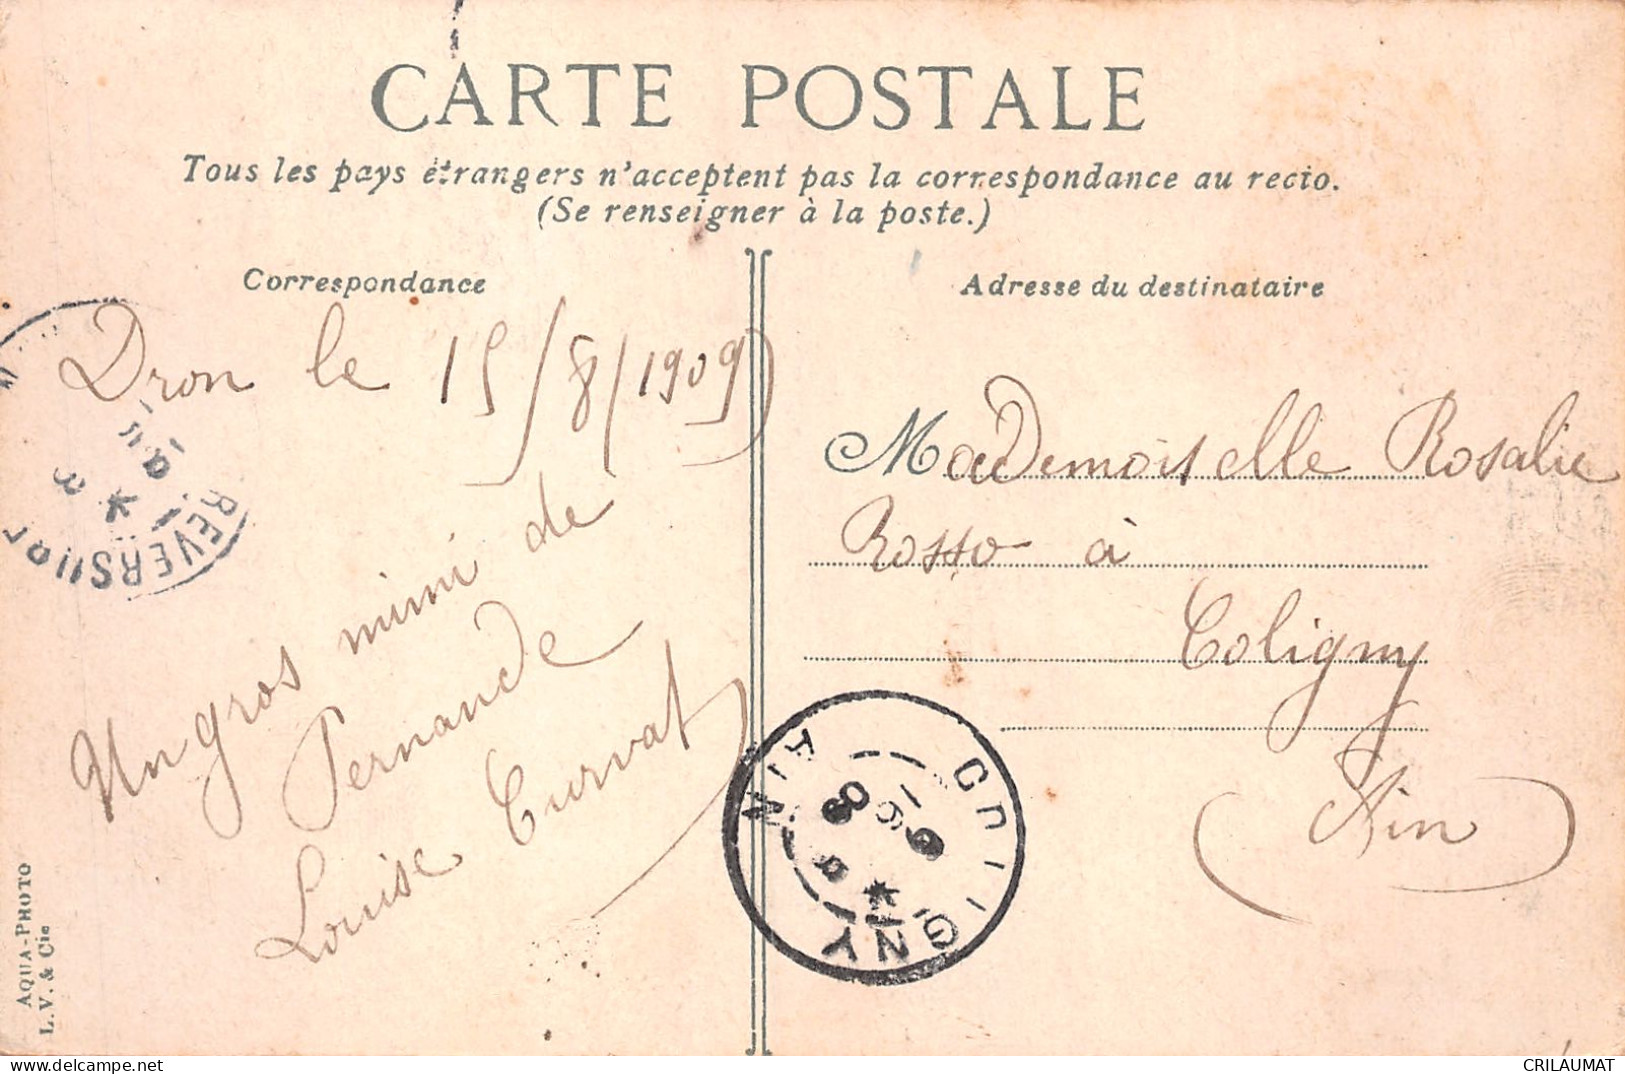 CARTE POSTALE
Tous les pays étrangers n'acceptent pas la correspondance au recto.
(Se renseigner à la poste.)
Correspondance
Dron le 15/8/1909
Un gros mimi de
Fernande
Louise Curvat
Adresse du destinataire
Mademoiselle Rosalie
Rosso à
Coligny
(Ain)
COLIGNY
AIN
16
8
09
REVERS
AQUA-PHOTO
L.V. & Cie
delcampe.net
CRILAUMAT